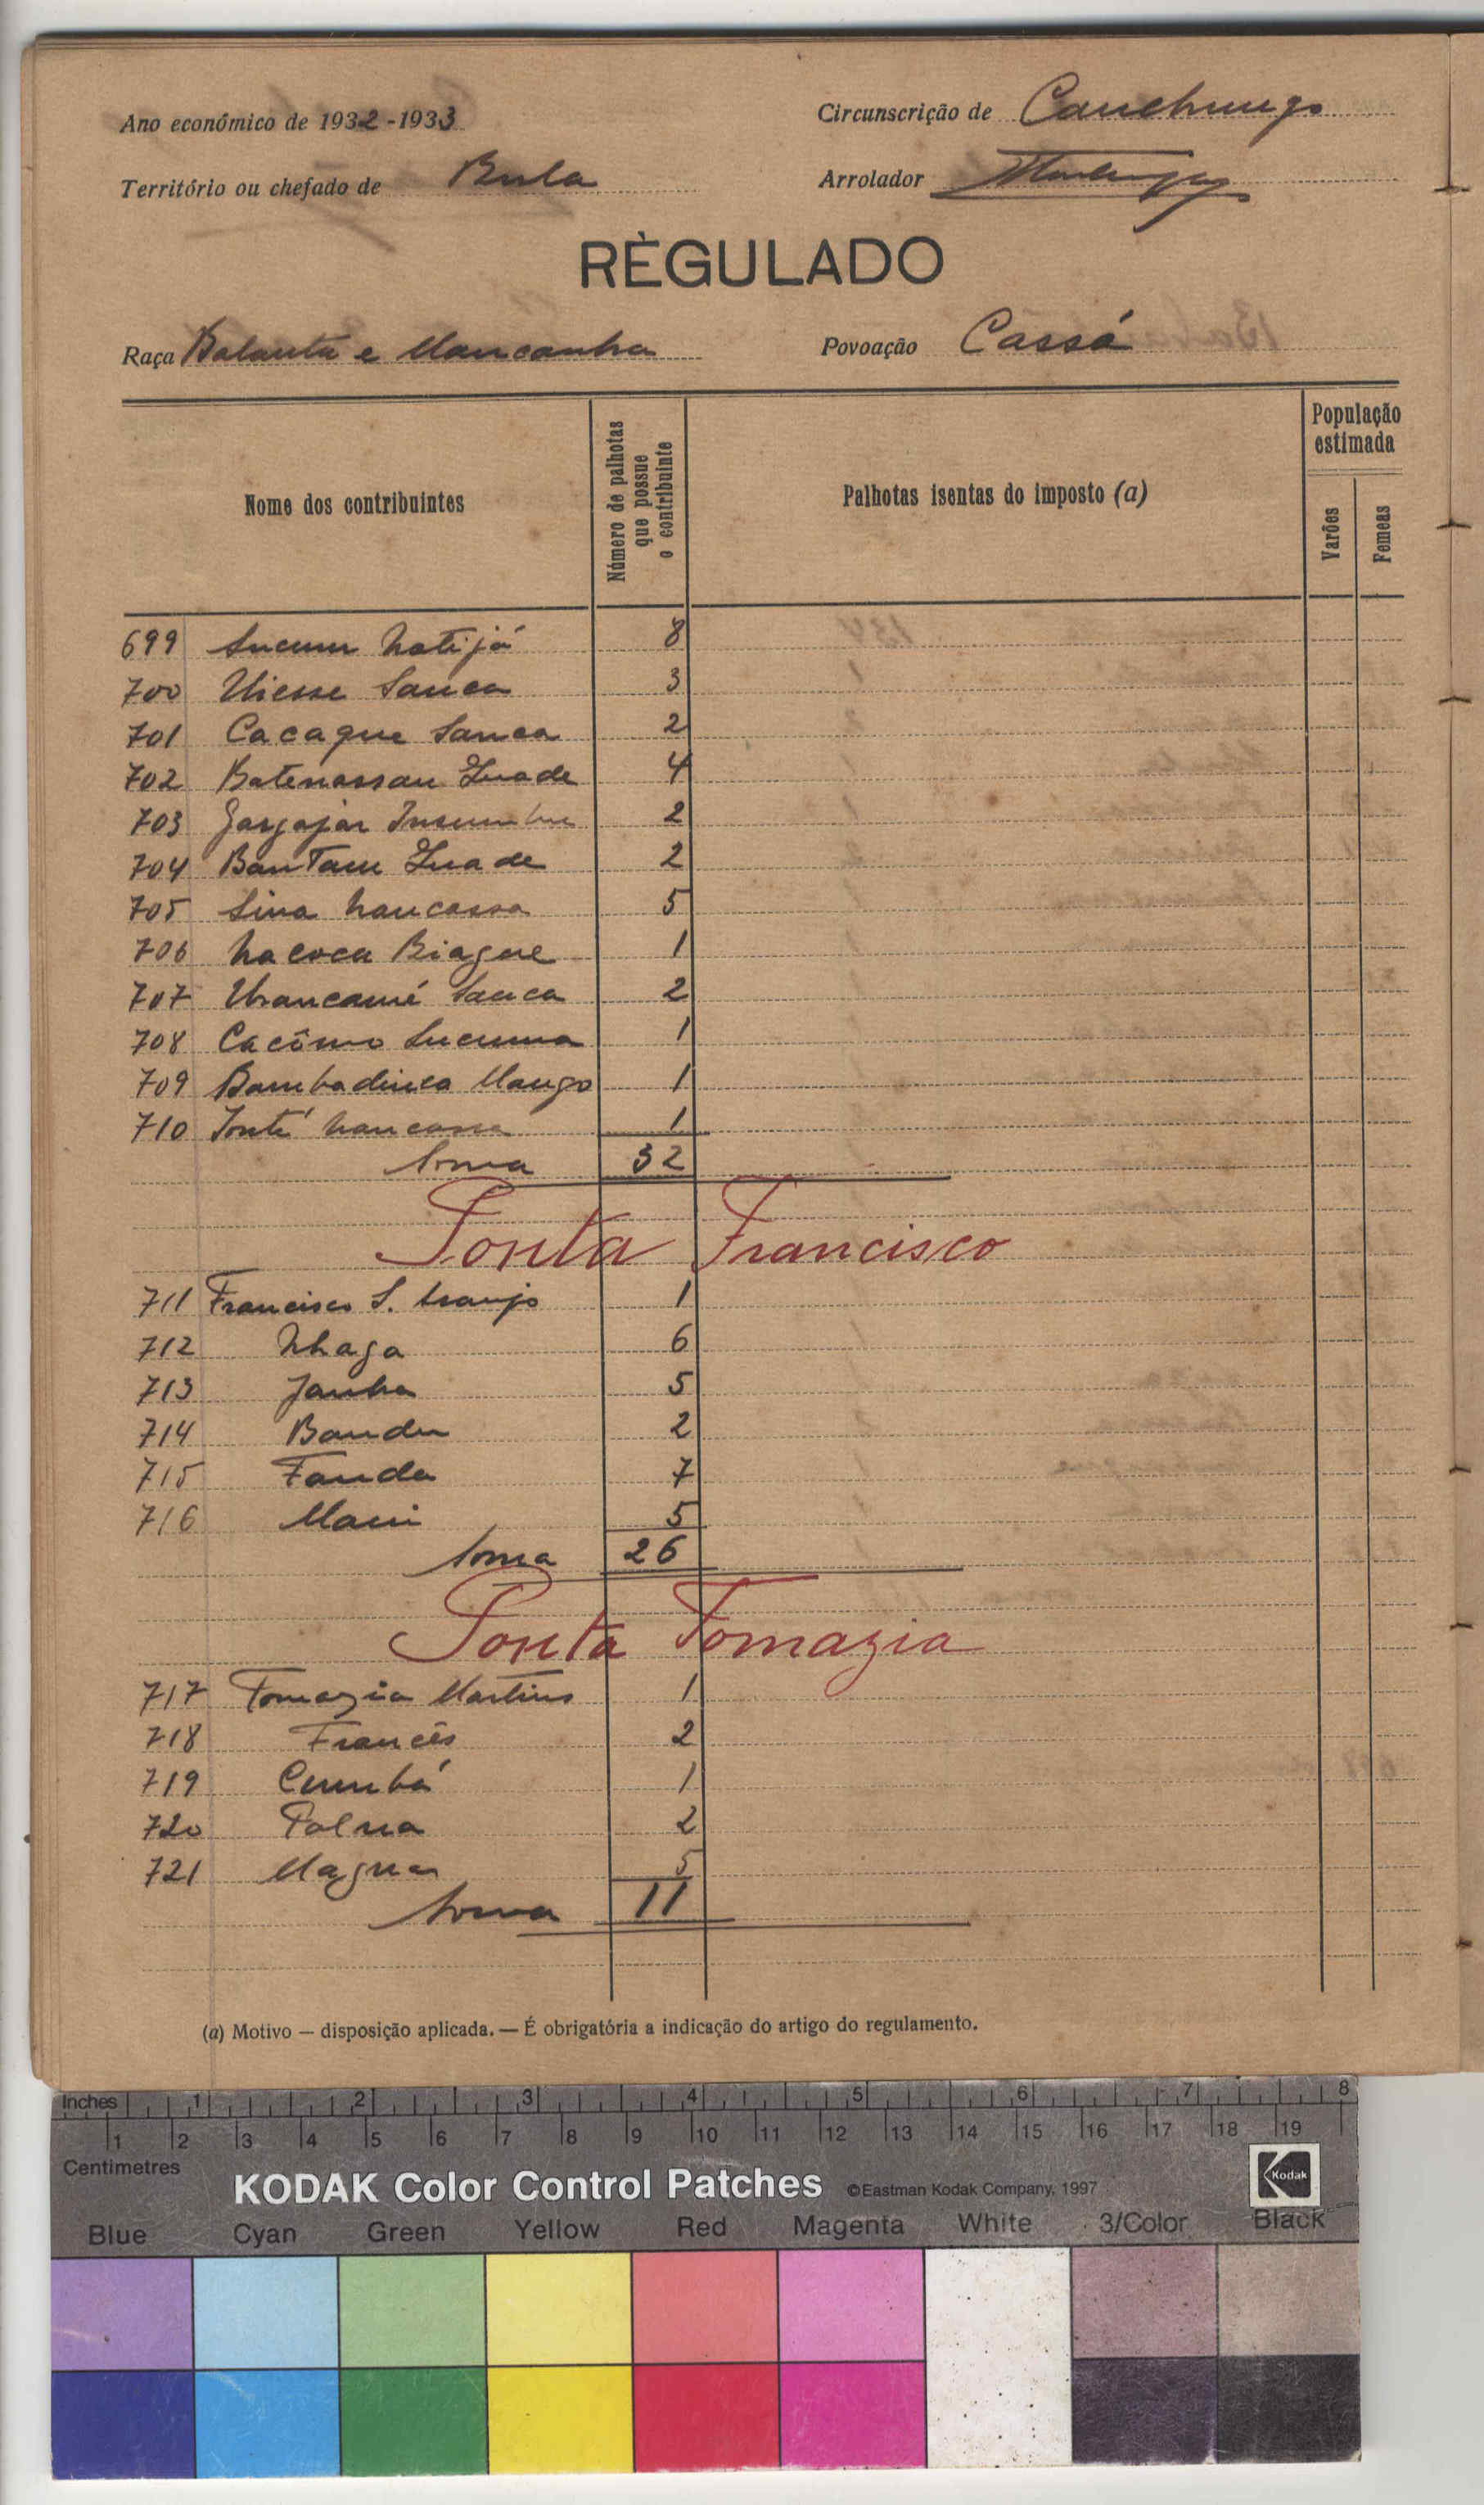 Ano económico de 1932-1933
Circunscrição de Canchungo
Território ou chefado de Bula
Arrolador
RÈGULADO
Raça Balanta e Mancanha
Povoação Cassá
Nome dos contribuintes
Número de palhotas que possue o contribuinte
Palhotas isentas do imposto (a)
População estimada
Varões
Femeas
699 Sucuma Natijá 8
700 Uiesse Sanca 3
701 Cacaque Sanca 2
702 Batenassau Quade 4
703 2
704 Bantam Quade 2
705 Sina Nancassa 5
706 Nacoca Biague 1
707 Sanca 2
708 Cacômo Sucuma 1
709 Bambadinca Mango 1
710 Tonté Nancassa 1
Soma 32
Ponta Francisco
711 Francisco S. Araujo 1
712 Nhaga 6
713 Janha 5
714 Bandu 2
715 Fanda 7
716 5
Soma 26
Ponta Tomazia
717 Tomazia Martins 1
718 Francês 2
719 Cumbá 1
720 Palna 2
721 Magna 5
Soma 11
(a) Motivo — disposição aplicada. — É obrigatória a indicação do artigo do regulamento.
Inches 1 2 3 4 5 6 7 8
1 2 3 4 5 6 7 8 9 10 11 12 13 14 15 16 17 18 19
Centimetres
KODAK Color Control Patches ©Eastman Kodak Company, 1997 Kodak
Blue Cyan Green Yellow Red Magenta White 3/Color Black